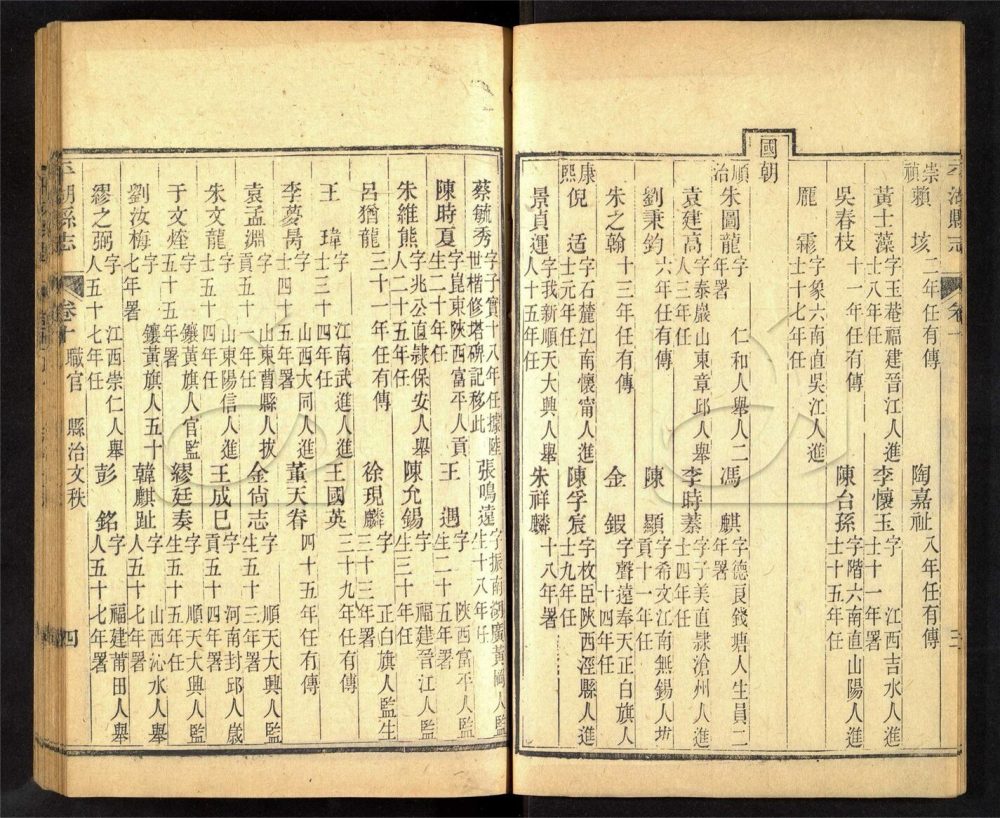 平湖縣志
卷十
三
崇禎 賴垓 二年任有傳
陶嘉祉 八年任有傳
黃士藻 字玉菴福建晉江人進士八年任
李懷玉 字 江西吉水人進士十一年署
吳春枝 十一年任有傳
陳台孫 字階六南直山陽人進士十五年任
龎霦 字象六南直吳江人進士十七年任
國朝
順治 朱圖龍 字 仁和人舉人二年署
馮麒 字德良錢塘人生員二年署
袁建高 字泰巖山東章邱人舉人三年任
李時蓁 字子美直隸滄州人進士四年任
劉秉鈞 六年任有傳
陳顯 字希文江南無錫人拔貢十一年任
朱之翰 十三年任有傳
金鍜 字聲遠奉天正白旗人十四年任
康熙 倪适 字石麓江南懷甯人進士元年任
陳孚宸 字枚臣陝西涇縣人進士九年任
景貞運 字我新順天大興人舉人十五年任
朱祥麟 十八年署
蔡毓秀 字子實十八年任據陸世楷修塔碑記移此
張鳴遠 字振南湖廣黃岡人監生十八年任
陳時夏 字崑東陝西富平人貢生二十年任
王遇 字 陝西富平人監生二十五年署
朱維熊 字兆公直隸保安人舉人二十五年任
陳允錫 字 福建晉江人監生三十年任
呂猶龍 三十一年任有傳
徐現麟 字 正白旗人監生三十三年署
王瑋 字 江南武進人進士三十四年任
王國英 三十九年任有傳
李蔓㫤 字 山西大同人進士四十五年署
董天眷 四十五年任有傳
袁孟淵 字 山東曹縣人拔貢五十一年任
金尙志 字 順天大興人監生五十三年署
朱文龍 字 山東陽信人進士五十四年任
王成巳 字 河南封邱人歲貢五十四年署
于文煃 字 鑲黃旗人官監五十五年署
繆廷奏 字 順天大興人監生五十五年任
劉汝梅 字 鑲黃旗人五十七年署
韓麒趾 字 山西沁水人舉人五十七年署
繆之弼 字 江西崇仁人舉人五十七年任
彭銘 字 福建莆田人舉人五十七年署
平湖縣志
卷十 職官 縣治文秩
四